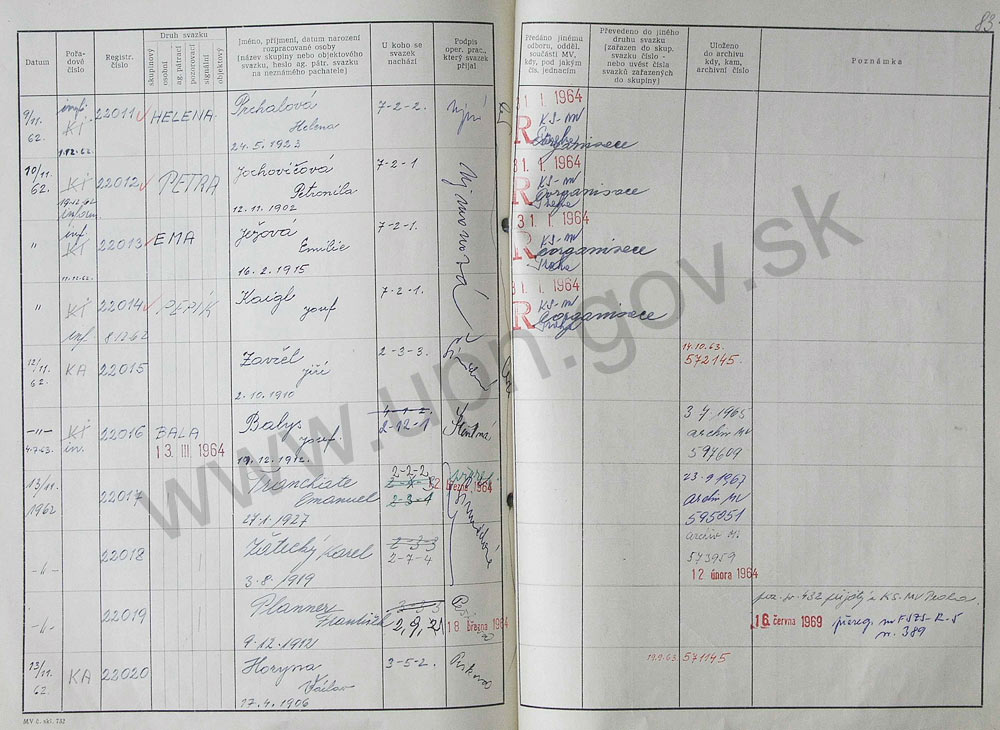 83
Datum
Pořa-
dové
číslo
Registr.
číslo
Druh svazku
skupinový
osobní
ag. pátrací
pozorovací
signální
objektový
Jméno, příjmení, datum narození
rozpracované osoby
(název skupiny nebo objektového
svazku, heslo ag. pátr. svazku
na neznámého pachatele)
U koho se
svazek
nachází
Podpis
oper. prac.,
který svazek
přijal
Předáno jinému
odboru, odděl.
součásti MV,
kdy, pod jakým
čís. jednacím
Převedeno do jiného
druhu svazku
(zařazen do skup.
svazku číslo -
nebo uvést čísla
svazků zařazených
do skupiny)
Uloženo
do archivu
kdy, kam,
archivní číslo
Poznámka
9/11.
62.
KI
1.12.62.
22011
HELENA
Prchalová
Helena
24.5.1923
7-2-2.
1 1964
KS-MV
Praha
Reorganisace
10/11.
62.
KI
22012
PETRA
Jochovičová
Petronila
12.11.1902
7-2-1
31. 1 1964
KS-MV
Praha
Reorganisace
"
inf.
KI
11.12.62.
22013
EMA
Ježová
Emilie
16.2.1915
7-2-1.
31. 1 1964
KS-MV
Praha
Reorganisace
"
KI
inf. 8.12.62
22014
PEPÍK
Kaigl
Josef
7-2-1.
31. 1 1964
KS-MV
Praha
Reorganisace
12/11.
62.
KA
22015
Zavřel
Jiří
2.10.1910
2-3-3.
14.10.63.
572145.
-"-
4.7.63.
KI
22016
BALA
13. III. 1964
Balys
Josef
19.12.1912.
4-1-2.
2-12-1
archiv MV
597609
13/11.
1962
22017
Emanuel
27.1.1927
2-2-2
2-3-1
března 1964
23.9.1967
archiv MV
595051
-"-
22018
Karel
3.8.1919
2-3-3
2-7-4
archiv M.
573959
12 února 1964
-"-
22019
Planner
František
9.12.1921
3-3-3
2,9,2
18. března 1964
KS-MV Praha
16. června 1969
č. 389
13/11.
62.
KA
22020
Horyna
Václav
17.4.1906
3-5-2.
19.9.63. 571145
MV č. skl. 732
www.upn.gov.sk